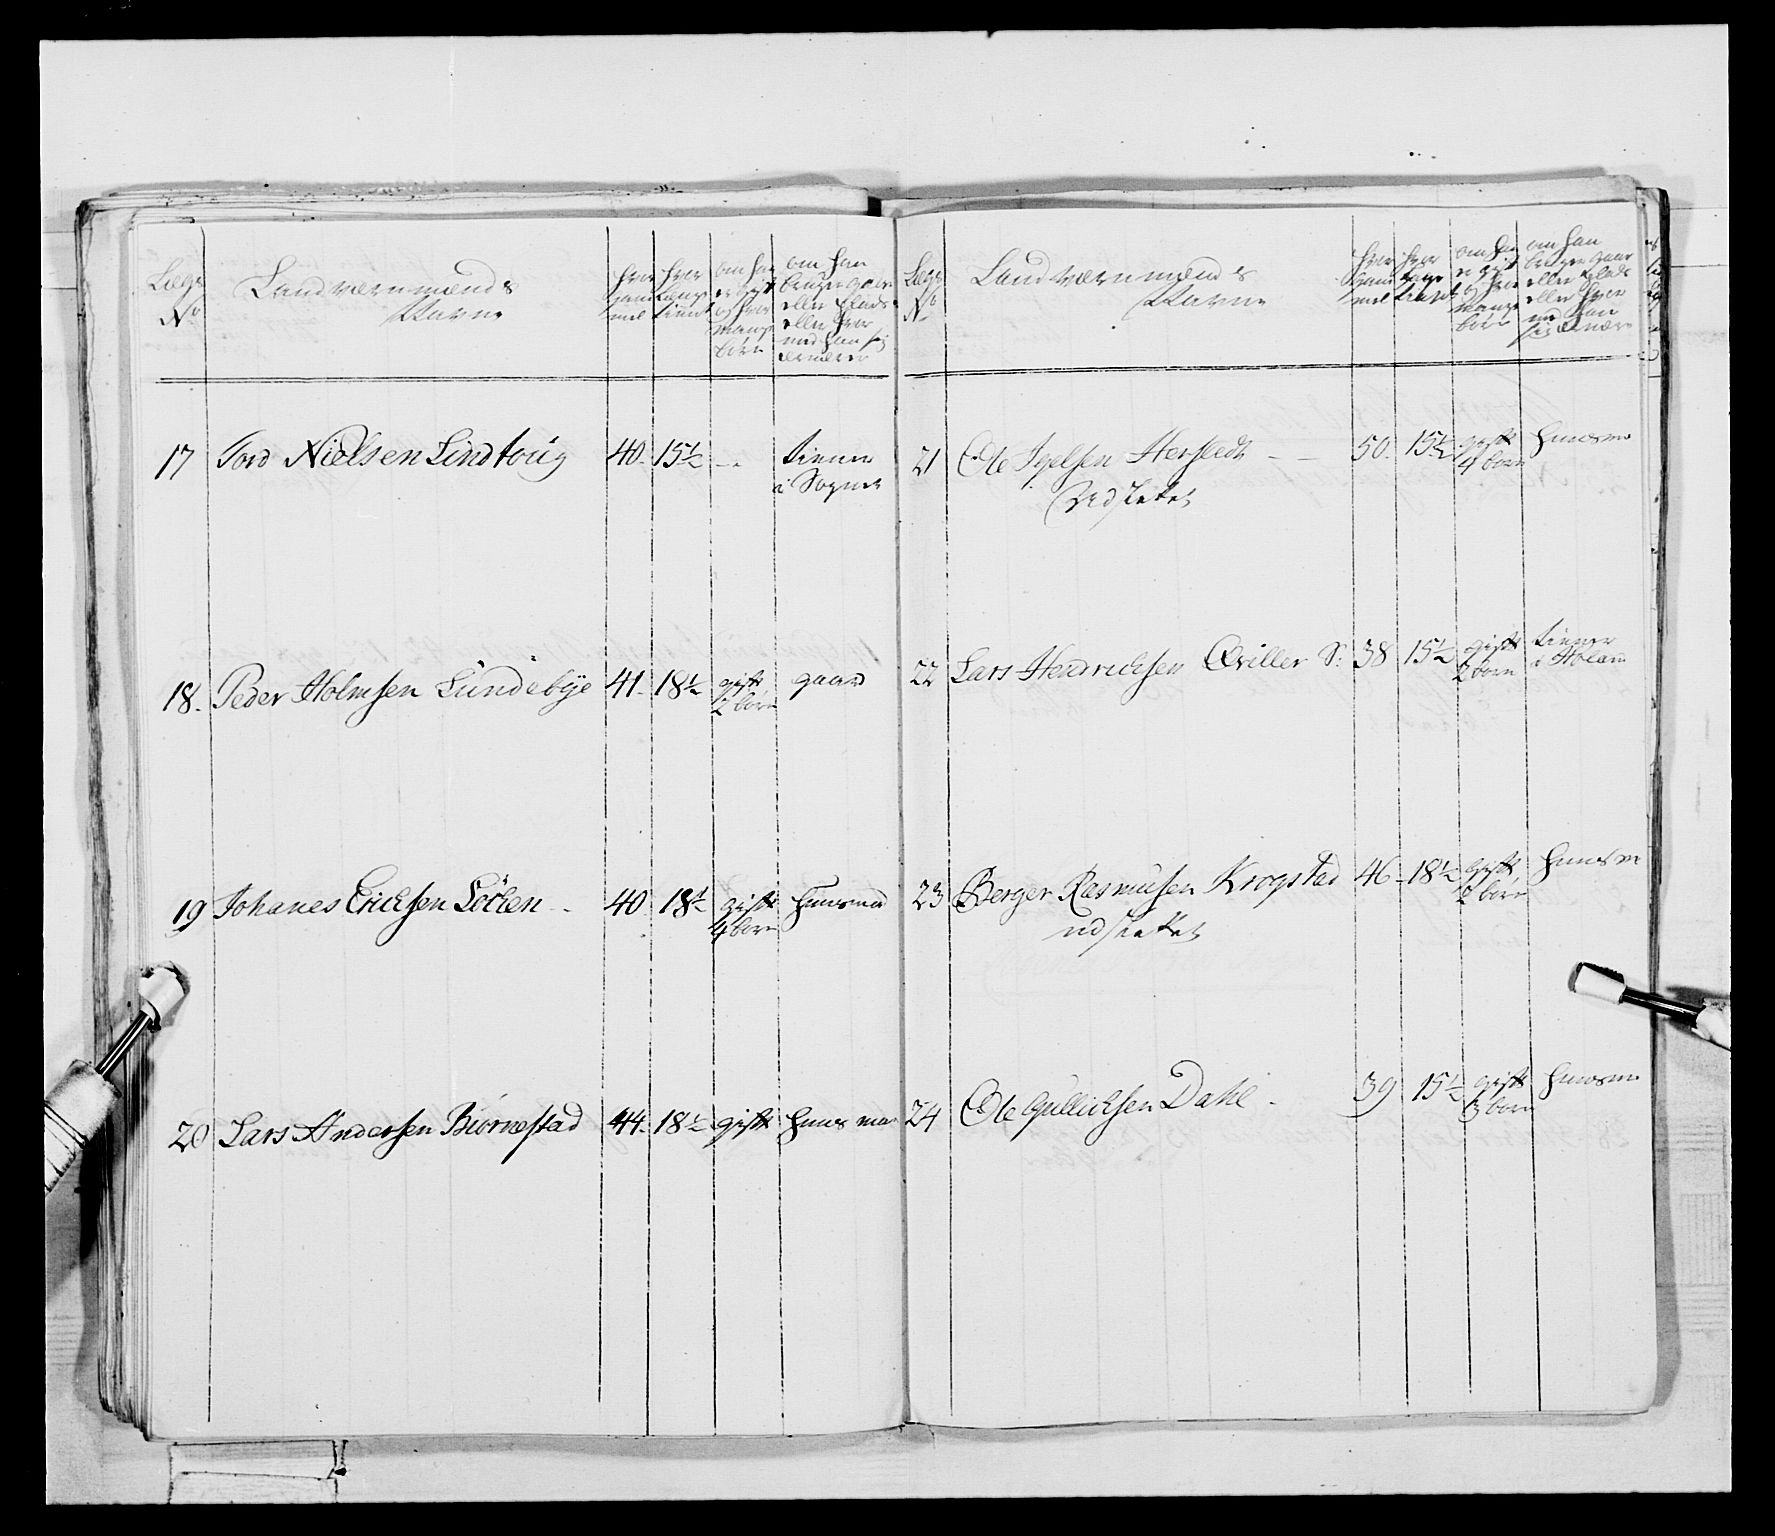 Lægs No
Landværnmænds Navne
hvor gammel
hvor længe tient
om han er gift og hvor mange børn
om han bruger gaard eller plads eller hvor med han sig ernærer
17 Tord Nielsen Lindtoug 40. 15½ -.- tiener i Sognet
18. Peder Holmsen Lundebÿe 41. 18½ gift 2 børn gaard
19 Johanes Ericksen Löcken 40 18½ gift 4 børn huusmand
20 Lars Andersen Biørnestad 44. 18½ gift huusman
Lægs No
Landværnmænds Navne
hvor gammel
hvor længe tient
om han er gift og hvor mange børn
om han bruger gaard eller plads eller hvor med han sig ernær
21 Ole Herstedt 50. 15½ gift 4 børn huusm
Udsluttet
22 Lars Hendrichsen Qviller S: 38 15½ gift 2 børn tiener i
23 Berger Rasmusen Krogstad 46 18½ gift 2 børn huusm
24 Ole Gullichsen Dahl - 39 15½ gift 3 børn huusm